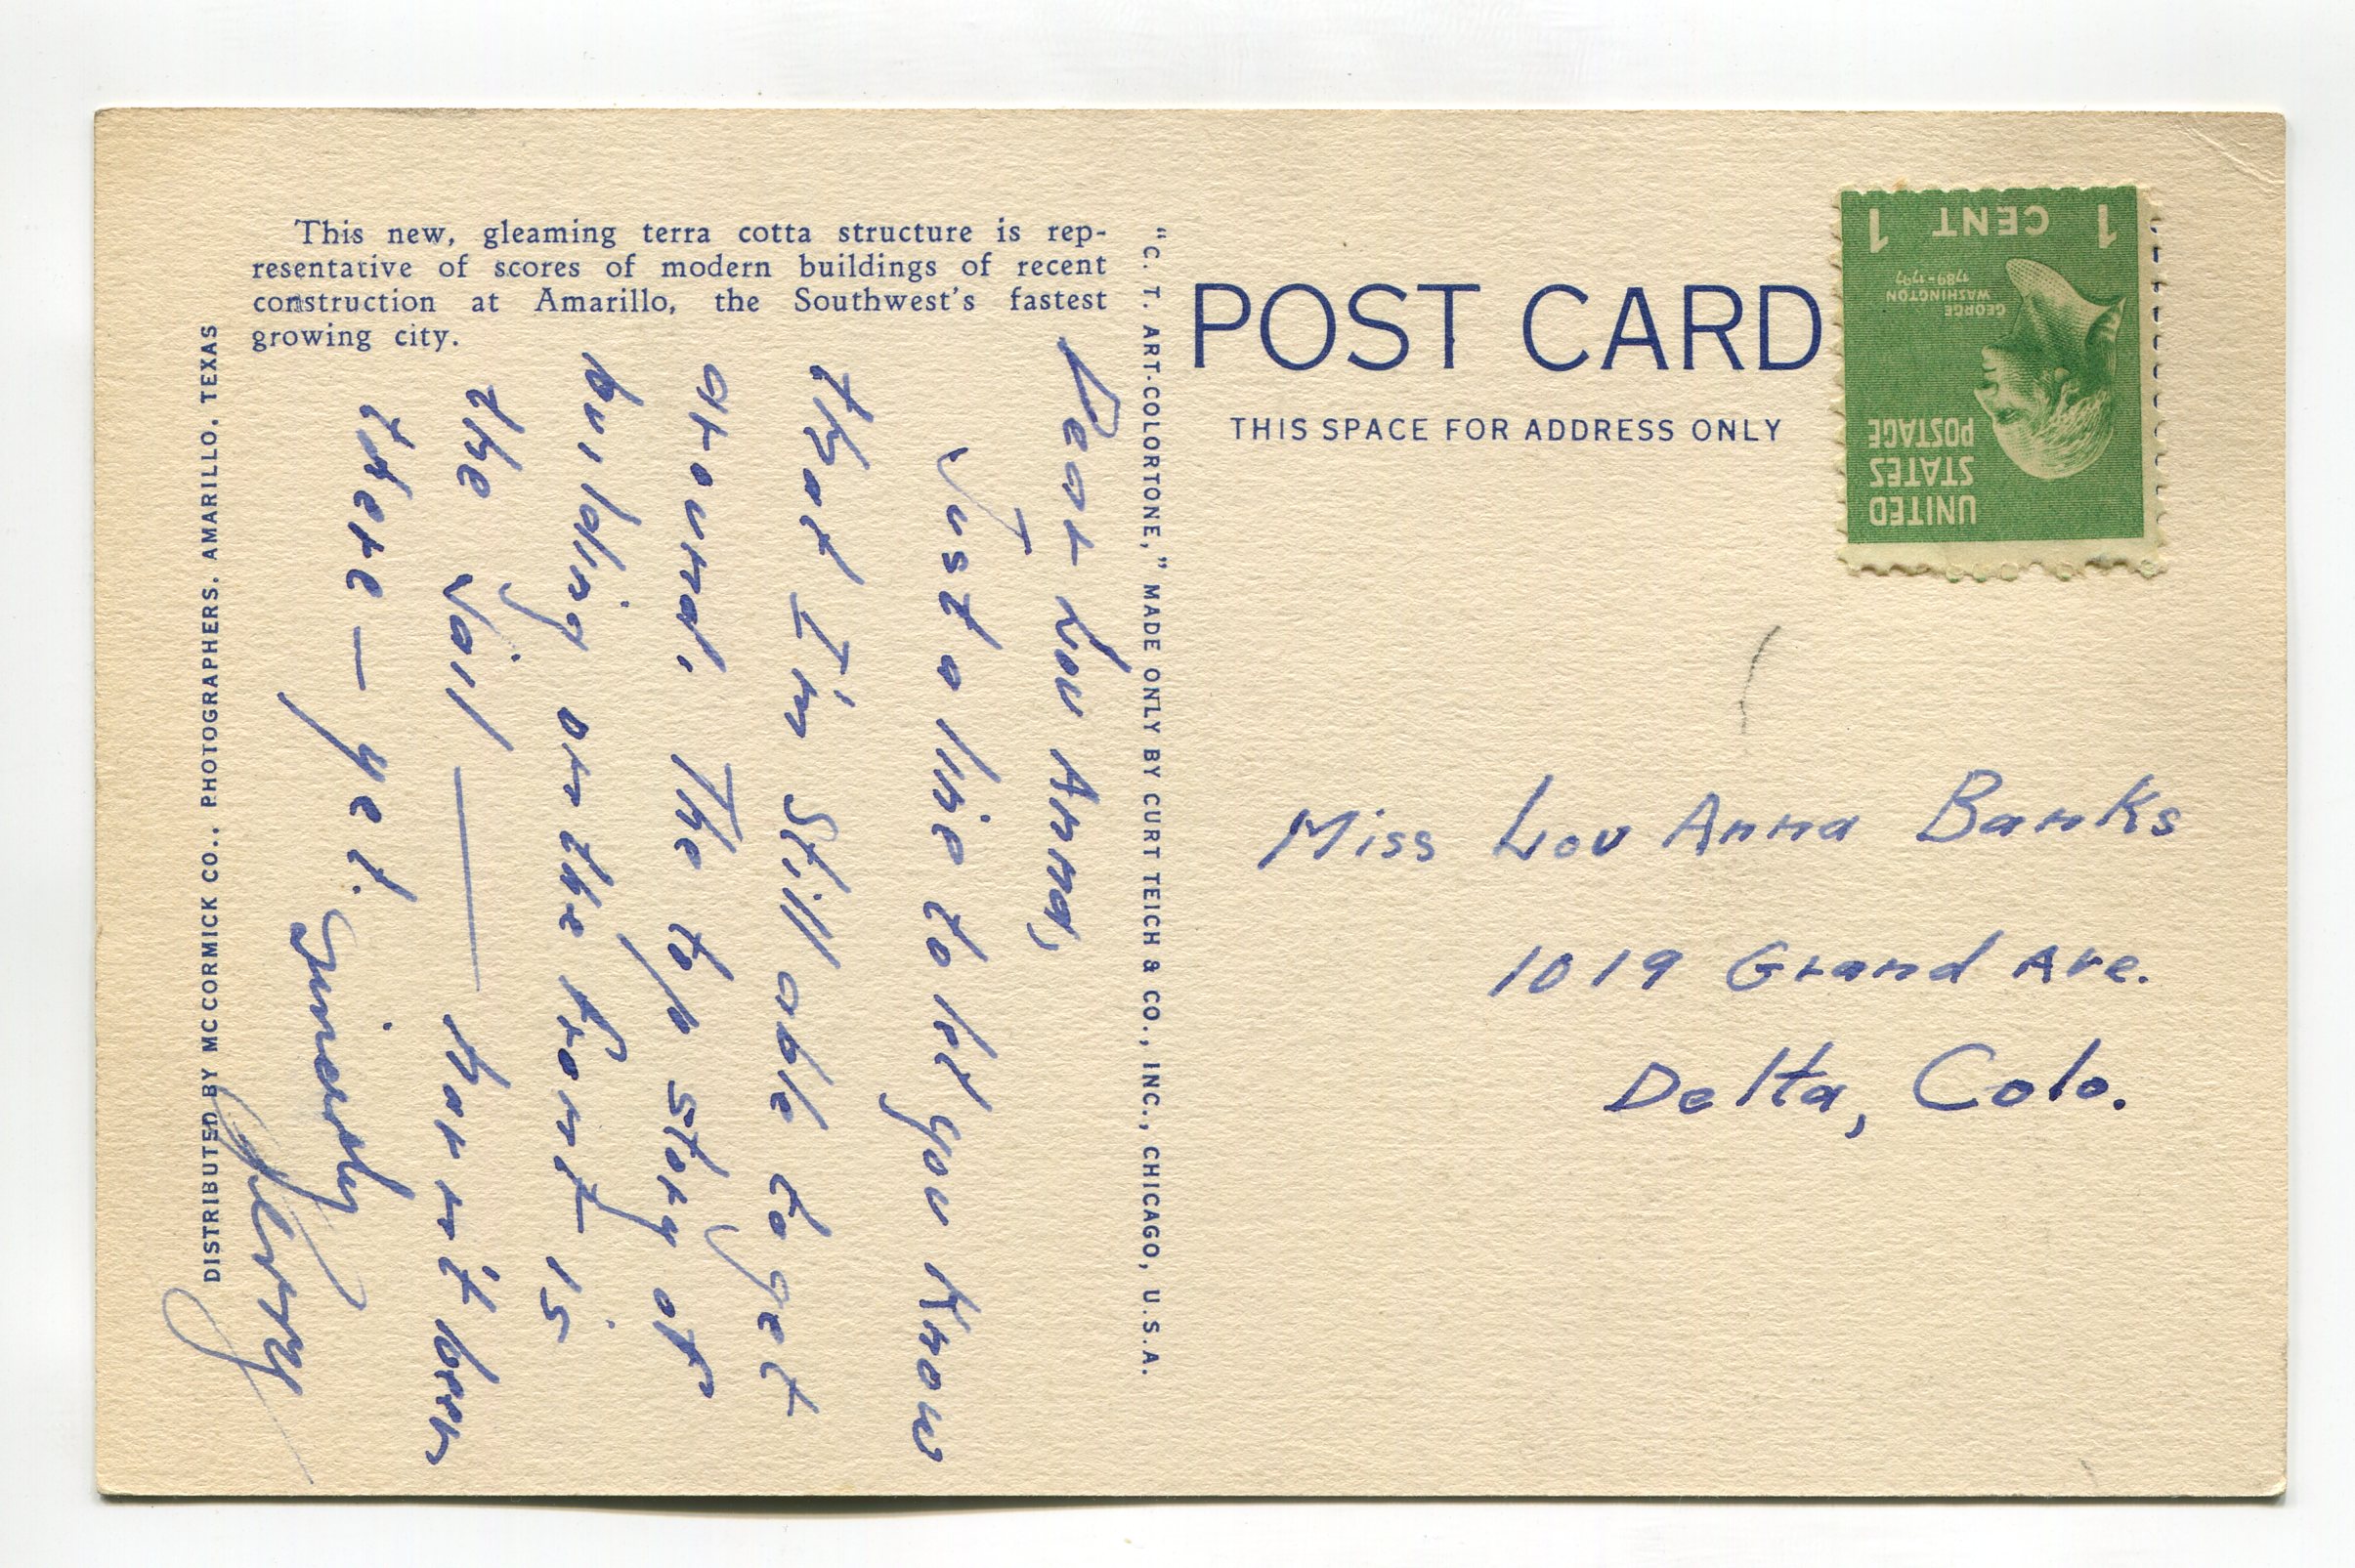 This new, gleaming terra cotta structure is rep-
resentative of scores of modern buildings of recent
construction at Amarillo, the Southwest's fastest
growing city.
DISTRIBUTED BY MCCORMICK CO., PHOTOGRAPHERS, AMARILLO, TEXAS
Dear Lou Anna,
Just a line to let you know
that I'm still able to get
around. The top story of
building on the front is
the jail — haven't been
there — yet.
Sincerely
"C. T. ART-COLORTONE," MADE ONLY BY CURT TEICH & CO., INC., CHICAGO, U.S.A.
POST CARD
THIS SPACE FOR ADDRESS ONLY
UNITED
STATES
POSTAGE
GEORGE
WASHINGTON
1789-1797
1 CENT 1
Miss Lou Anna Banks
1019 Grand Ave.
Delta, Colo.